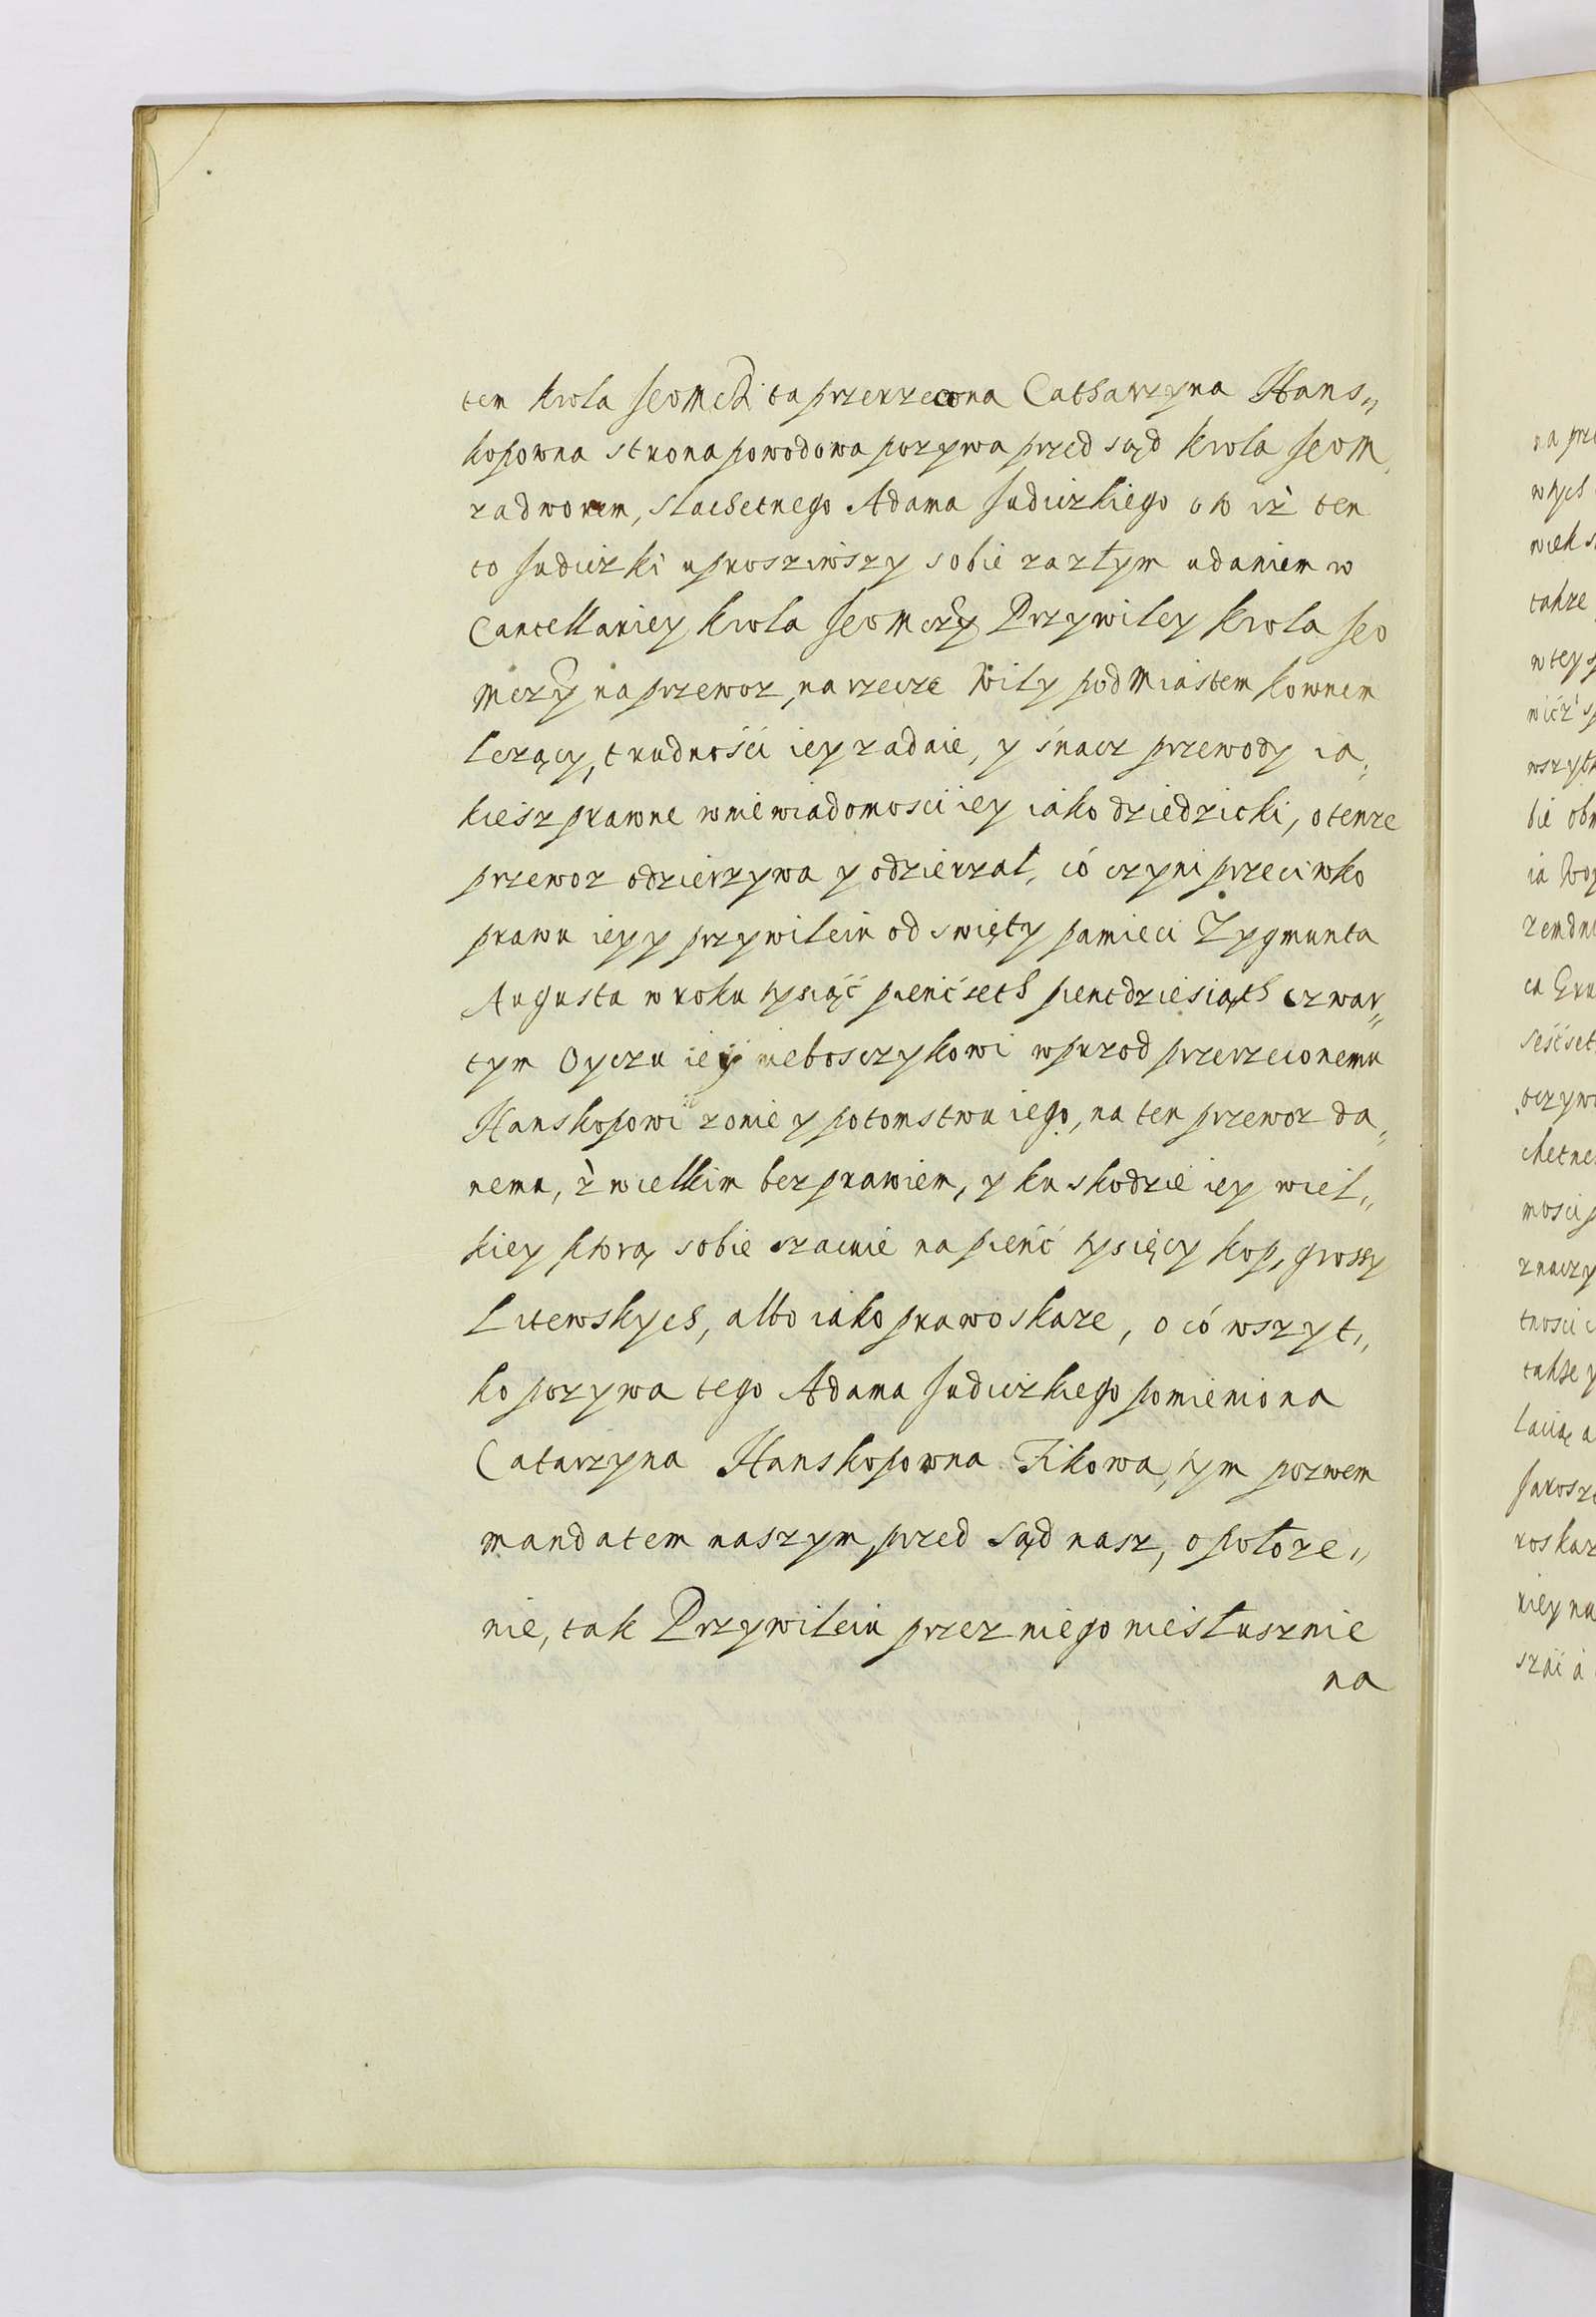 tem krola Jeomcźi ta przerzeczona Catharzyna Hans„
kopowna strona powodowa pozywa przed sąd krola Jeom
zadworem, slachetnego Adama Judiczkiego o to iż ten
to Judiczki uprosziwszy sobie zazłym udaniem w
Cancellariey krola Jeomczy Przywiley krola Jeo
mczy na przewoz, na rzecze Wily pod Miastem kownem
lezący, trudnośći iey zadaie, y śnacz przewody ia„
kieśz prawne wniewiadomosci iey iako dziedzicki, o tenze
przewoz odzierzywa y odzierzał, ćo czyni przeciwko
prawu iey y przywileiu od swięty pamieci Zygmunta
Augusta w roku tysiąć pieńćseth pientdziesiąth czwar„
tym Oyczu iey nieboszczykowi wprzod przerzeczonemu
Hanskopowi zonie y potomstwu iego, na ten przewoz da„
nemu, ż wielkim bezprawiem, y ku skodzie iey wiel„
kiey ktorą sobie szacuie na pieńć tysięcy kop, grossy
Litewskych, albo iako prawo skaze, o ćo wszyt„
ko pozywa tego Adama Judiczkiego pomieniona
Catarzyna Hanskopowna Fikowa, tym pozwem
mandatem naszym, przed Sąd nasz, o połoze„
nie, tak Przywileiu przez niego niesłusznie
na
na prz
wtych
wiek s
takze
w tey
wszytk
bie obm
ia Woy
sescset
oczyw
chetne
mosci p
znaczy
tnosci
takze y
lacią a
Jarosz
roskaz
kiey na